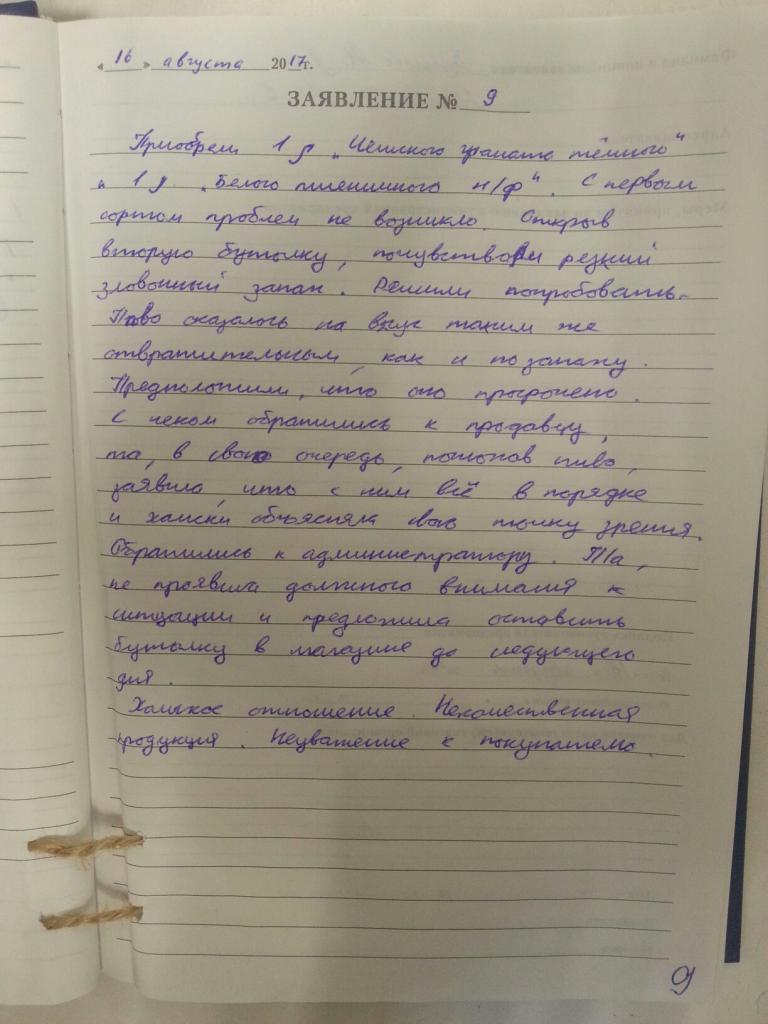 «16» августа 2017г.
ЗАЯВЛЕНИЕ № 9
Приобрели 1 л „Чешского граната тёмного"
и 1 л „Белого пшеничного н/ф". С первым
сортом проблем не возникло. Открыв
вторую бутылку, почувствовали резкий
зловонный запах. Решили попробовать.
Пиво оказалось на вкус таким же
отвратительным, как и по запаху.
Предположили, что оно просрочено.
С чеком обратились к продавцу,
та, в свою очередь, понюхав пиво,
заявила, что с ним всё в порядке
и хамски объясняла свою точку зрения.
Обратились к администратору. Та,
не проявила должного внимания к
ситуации и предложила оставить
бутылку в магазине до следующего
дня.
Хамское отношение. Некачественная
продукция. Неуважение к покупателю.
9